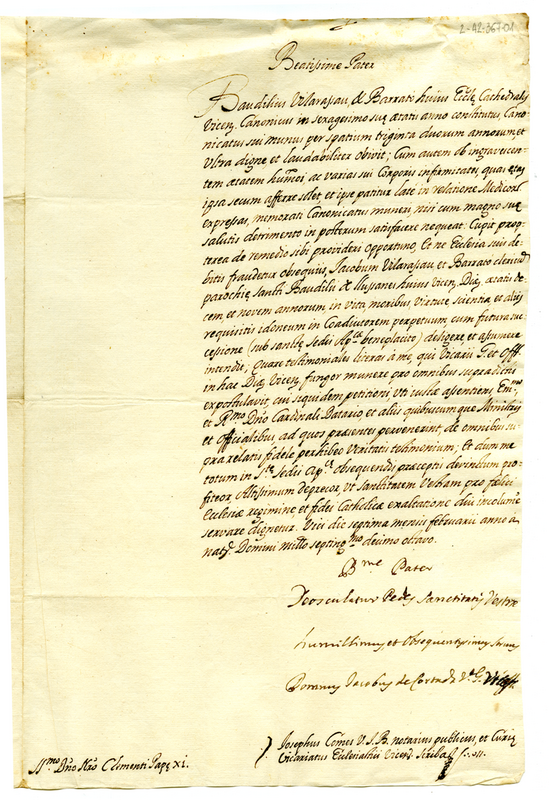 2-A2-367-01
Beatissime Pater
Baudilius Vilarasau, & Barrati huius Ecclę Cathedralis
Vicen, Canonicus in sexagesimo suę ætatis anno constitutus, Cano-
nicatus sui munus per spatium triginta duorum annorum, et
ultra digne et laudabiliter obivit; Cum autem ob ingravescen-
tem ætatem humoi, ac varias sui Corporis infirmitates, quas ętas
ipsa secum afferre solet, et ipse patitur late in relatione Medicorũ
expressas, memorati Canonicatus muneri, nisi cum magno suę
salutis detrimento in posterum satisfacere nequeat: Cupit prop-
terea de remedio sibi provideri opportuno, Et ne Ecclesia suis de-
bitis fraudetur obsequiis, Jacobum Vilarasau, et Barrato clericũ
parochię Sancti Baudilii de Llussanes huius Vicen, Dię, ætatis de-
cem, et novem annorum, in vita, moribus, virtute scientia, et aliis
requisitis idoneum in Coadiutorem perpetuum cum futura suc-
cessione (sub sanctę Sedis Apcę beneplacito) deligere et assumere
intendit; Quare testimoniales literas à me, qui Vicarii G. et Off.
in hac Dię, Vicen, fungor munere pro omnibus supradictis
expostulavit, cui siquidem petitioni, uti iusta assentiens, Emmo
et Rmo Dño Cardinali Datario et aliis quibuscumque Ministris
et officialibus, ad quos præsentes pervenerint, de omnibus su-
prarelatis fidele perhibeo Veritatis testimonium; Et dum me
totum in Stę Sedis Apcę obsequendis præceptis devinctum pro-
fiteor, Altissimum deprecor, ut Sanctitatem Vestram pro felici
Ecclesiæ regimine, et fidei Catholicæ exaltatione diu incolume
servare dignetur. Vici die septima mensis februarii anno a
natte Domini millo septingmo decimo octavo.
Bme Pater
Deosculatur Pedes Sanctitatis Vestræ
humillimus et Obsequentissimus servus
Jacobus de Cortada
Josephus Comes U.J.B. notarius publicus, et Curię
Vicariatus Ecclesiastici Vicen, scriba
Ssmo Dño Nro Clementi Papę XI.